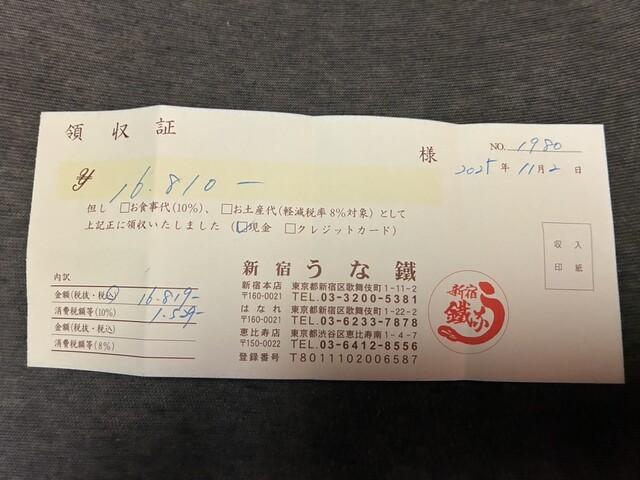 領収証
様
NO. 1980
2025年 11月 2日
¥ 16.810−
但し □お食事代(10%)、□お土産代(軽減税率8%対象)として
上記正に領収いたしました (□現金 □クレジットカード)
収入
印紙
内訳
金額(税抜・税込) 16.819−
消費税額等(10%) 1.529−
金額(税抜・税込)
消費税額等(8%)
新宿うな鐵
新宿本店 東京都新宿区歌舞伎町1-11-2
〒160-0021 TEL.03-3200-5381
はなれ 東京都新宿区歌舞伎町1-22-2
〒160-0021 TEL.03-6233-7878
恵比寿店 東京都渋谷区恵比寿南1-4-7
〒150-0022 TEL.03-6412-8556
登録番号 T8011102006587
新宿
うな
鐵